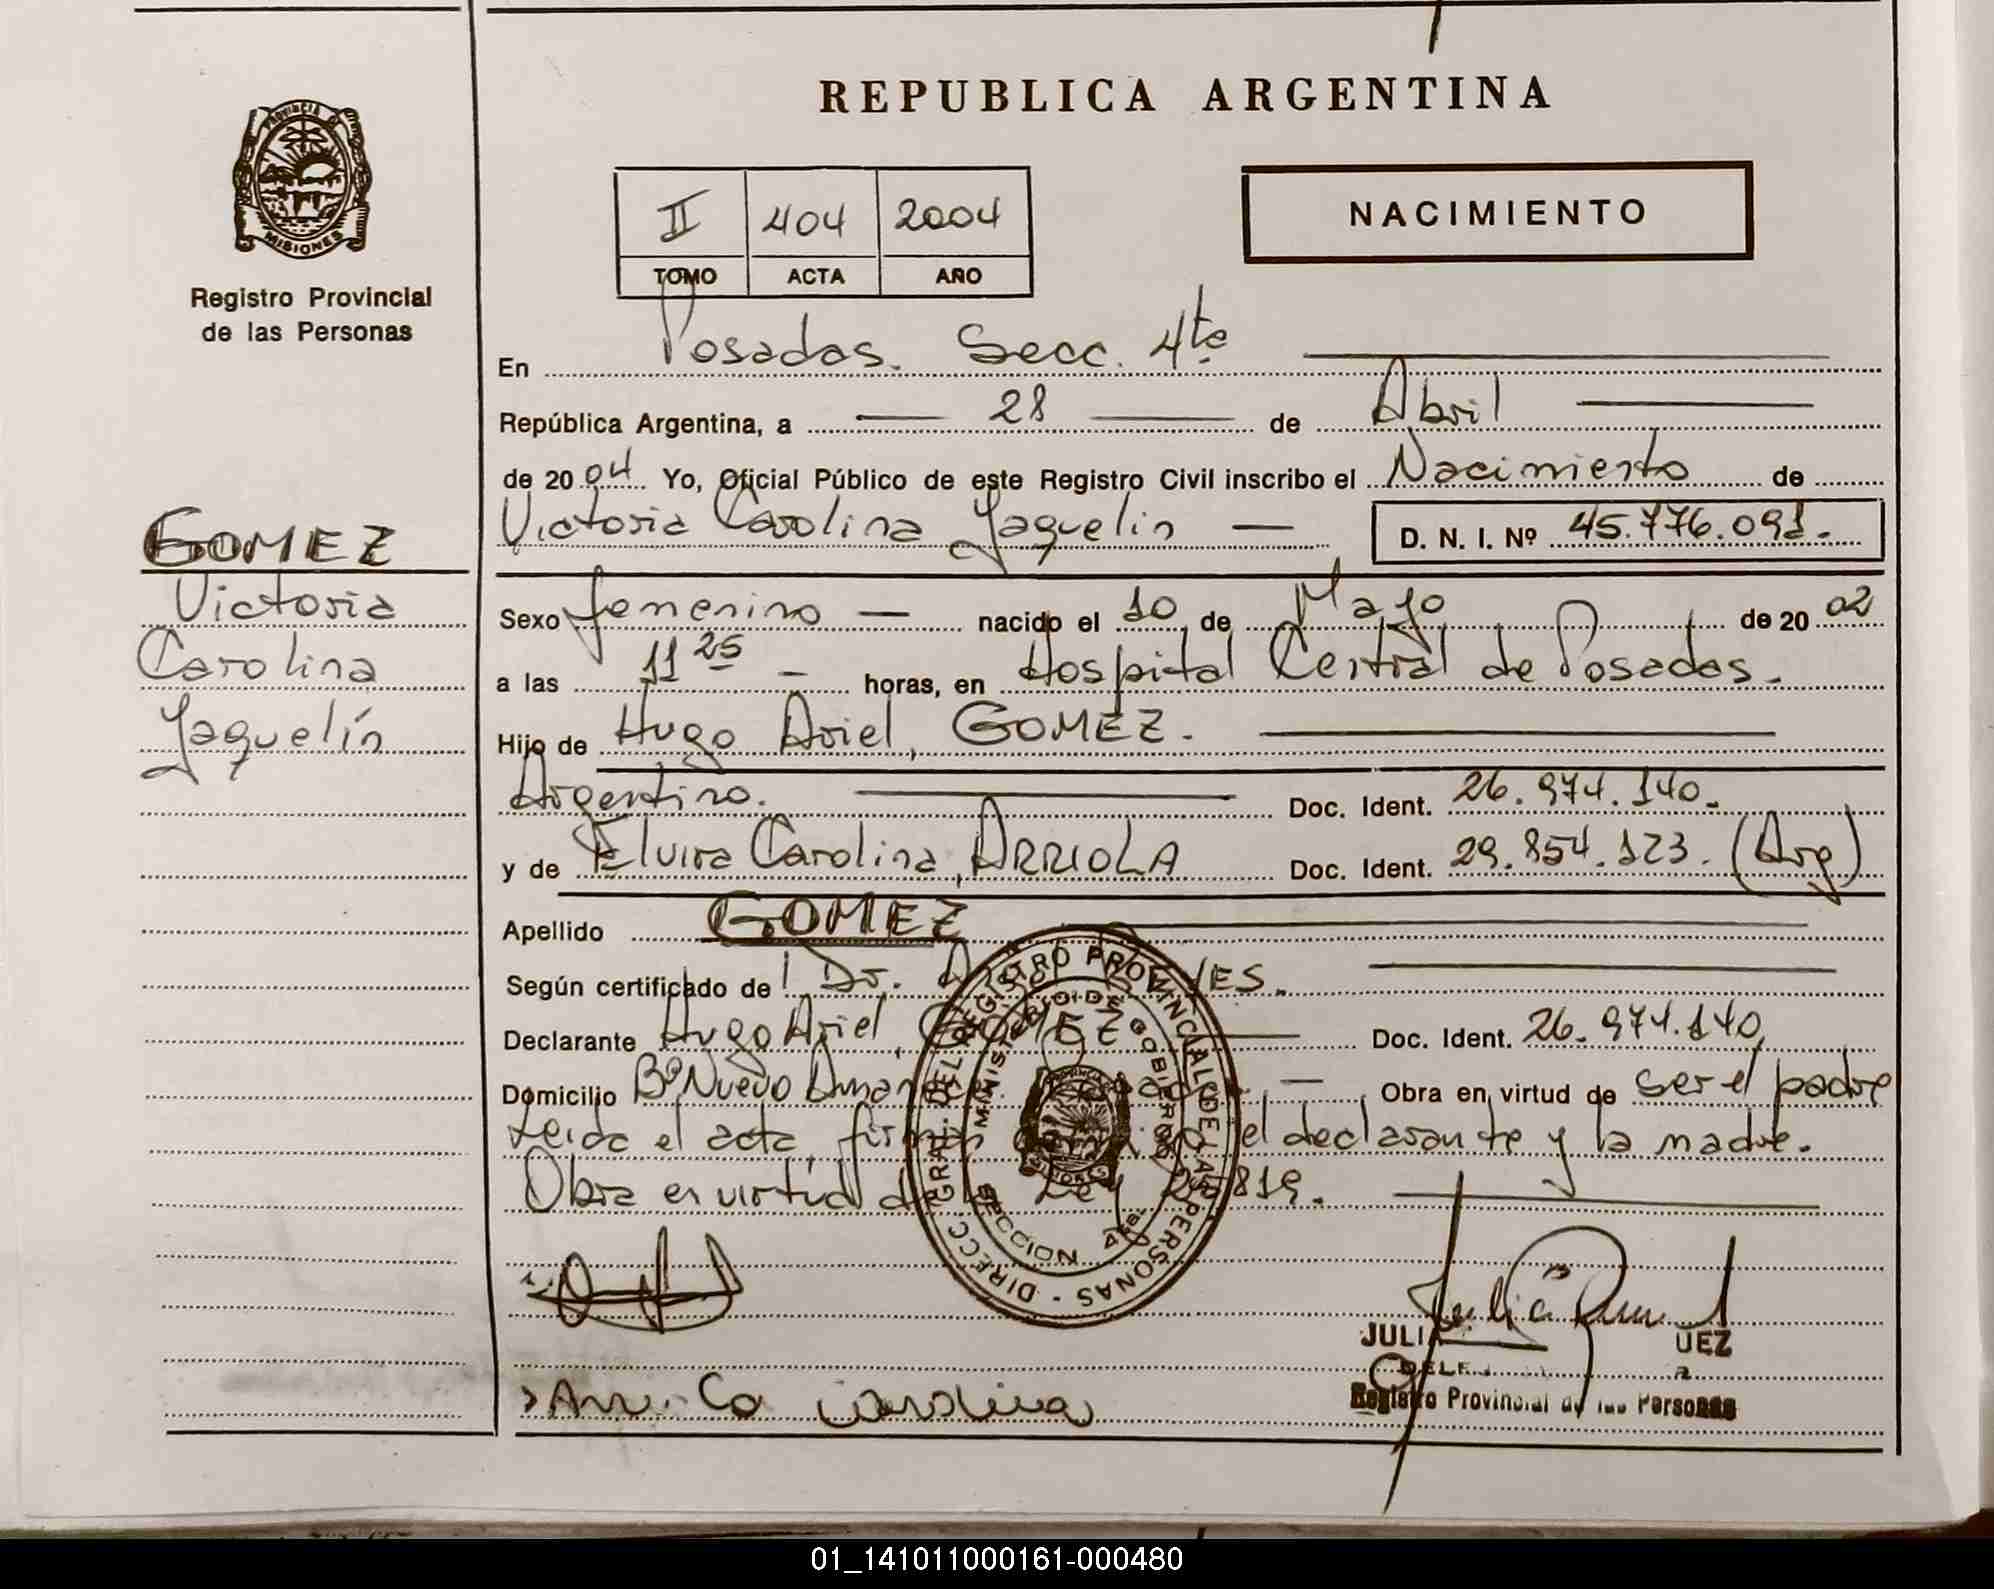 REPUBLICA ARGENTINA
PROVINCIA DE
MISIONES
Registro Provincial
de las Personas
II 404 2004
TOMO ACTA AÑO
NACIMIENTO
En Posadas. Secc. 4ta
República Argentina, a 28 de Abril
de 2004 Yo, Oficial Público de este Registro Civil inscribo el Nacimiento de
Victoria Carolina Yaquelin D. N. I. Nº 45.776.091.
GOMEZ
Victoria
Carolina
Yaquelín
Sexo femenino nacido el 10 de Mayo de 2002
a las 11 25 horas, en Hospital Central de Posadas.
Hijo de Hugo Ariel, GOMEZ.
Argentino. Doc. Ident. 26.974.140.
y de Elvira Carolina, ARRIOLA Doc. Ident. 29.854.123. (Arg)
Apellido GOMEZ
Según certificado de Dr.
Declarante Hugo Ariel, GOMEZ Doc. Ident. 26.974.140,
Domicilio Bº Nuevo Obra en virtud de ser el padre
Leida el acta, el declarante y la madre.
Obra en virtud de la Ley 25.819.
DIRECC. GRAL. DEL REGISTRO PROVINCIAL DE LAS PERSONAS
MINISTERIO DE GOBIERNO
SECCION 4ta
Carolina
JULIA UEZ
Registro Provincial de las Personas
01_141011000161-000480